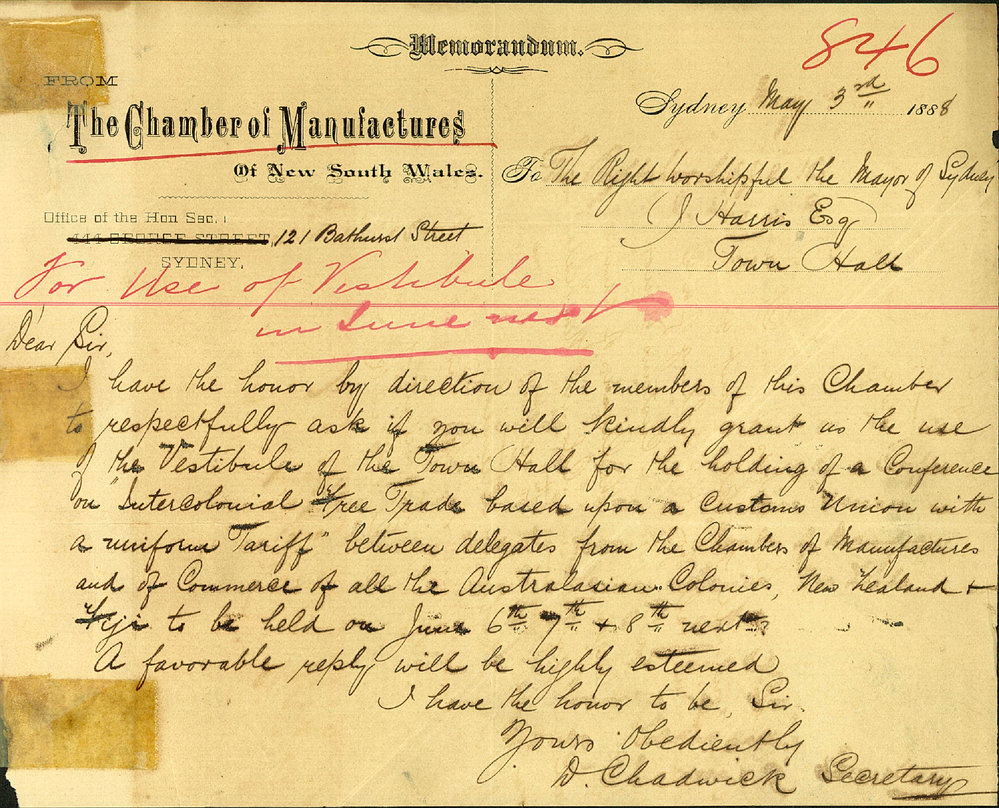 Memorandum.
846
FROM
The Chamber of Manufactures
Of New South Wales.
Office of the Hon Sec.
444 GEORGE STREET, 121 Bathurst Street
SYDNEY,
Sydney May 3rd 1888
To The Right Worshipful the Mayor of Sydney
(J Harris Esq)
Town Hall
For Use of Vestibule
in June next
Dear Sir,
I have the honor by direction of the members of this Chamber
to respectfully ask if you will kindly grant us the use
of the Vestibule of the Town Hall for the holding of a Conference
on "Intercolonial Free Trade based upon a Customs Union with
a uniform Tariff" between delegates from the Chambers of Manufactures
and of Commerce of all the Australasian Colonies, New Zealand +
Fiji to be held on June 6th 7th + 8th next?
A favorable reply will be highly esteemed
I have the honor to be, Sir
Yours Obediently
D. Chadwick Secretary